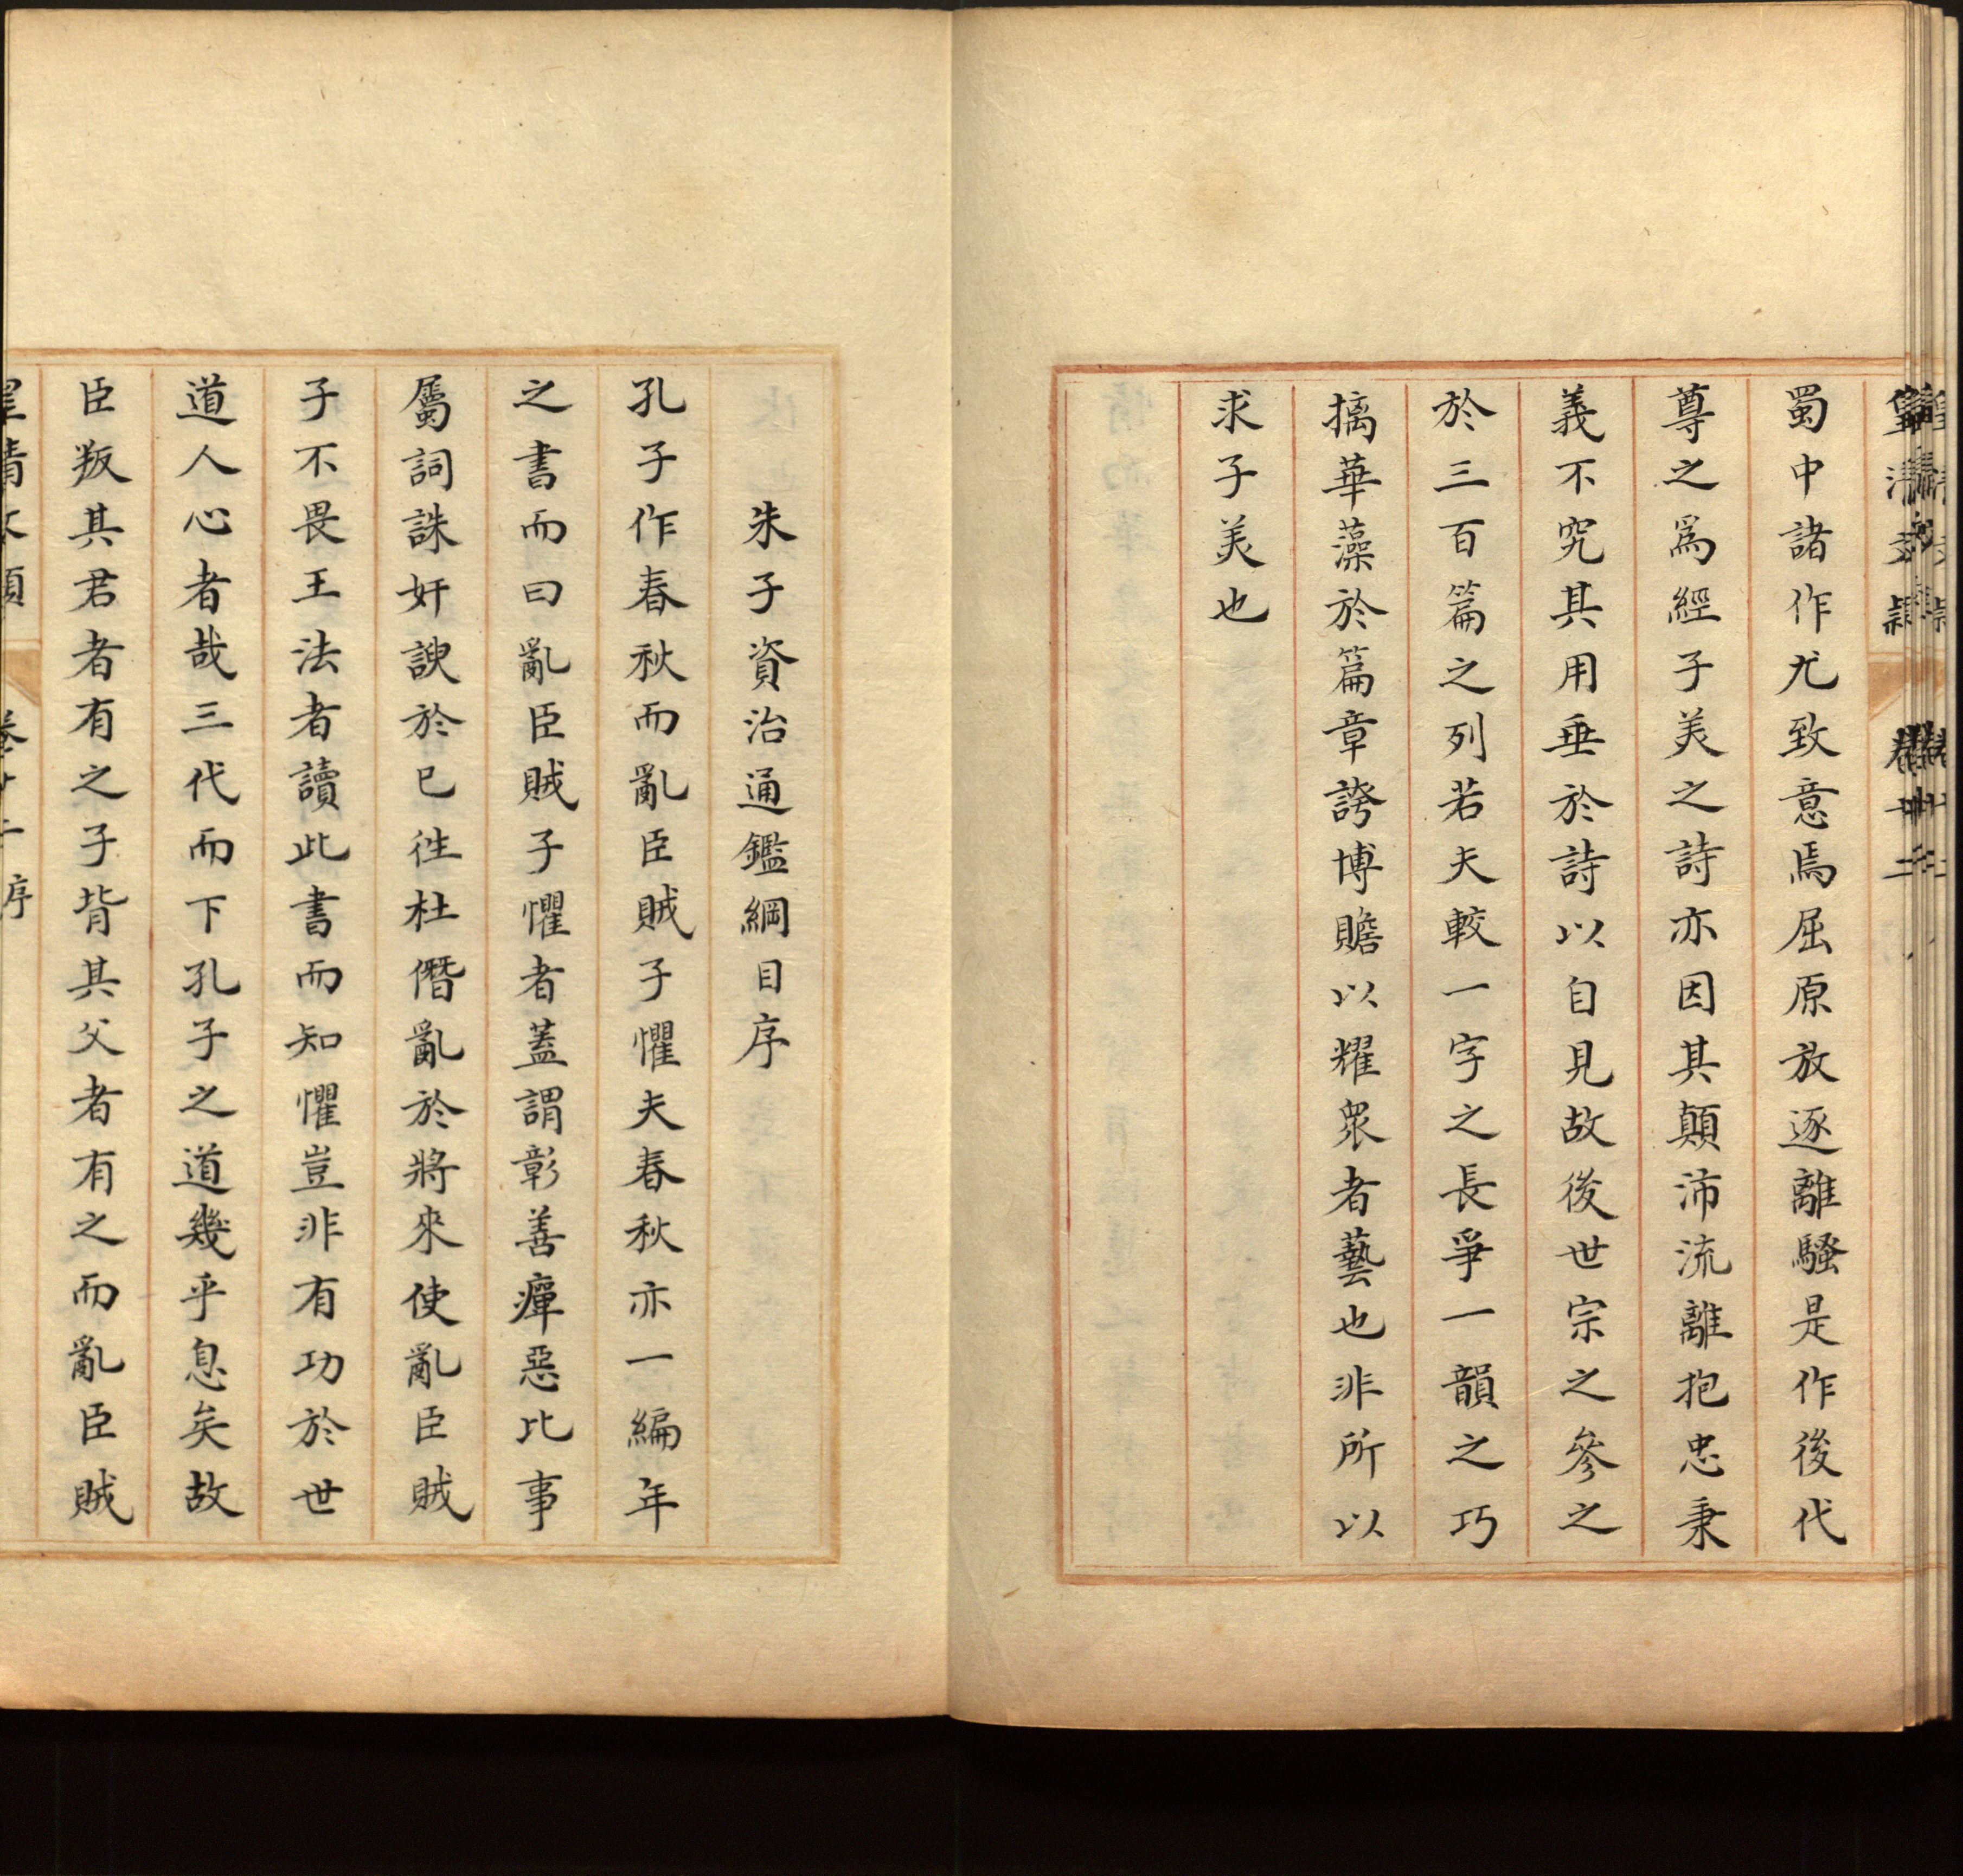 蜀中諸作尤致意焉屈原放逐離騷是作後代
尊之爲經子美之詩亦因其顛沛流離抱忠秉
義不究其用垂於詩以自見故後世宗之參之
於三百篇之列若夫較一字之長爭一韻之巧
摛華藻於篇章誇博贍以耀衆者藝也非所以
求子美也
朱子資治通鑑綱目序
孔子作春秋而亂臣賊子懼夫春秋亦一編年
之書而曰亂臣賊子懼者蓋謂彰善癉惡比事
屬詞誅奸諛於已徃杜僭亂於將來使亂臣賊
子不畏王法者讀此書而知懼豈非有功於世
道人心者哉三代而下孔子之道幾乎息矣故
臣叛其君者有之子背其父者有之而亂臣賊